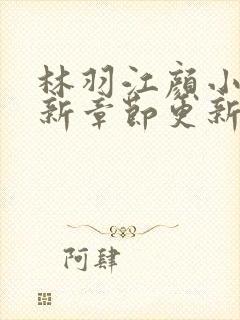 林羽江颜小
新章节更新
阿肆